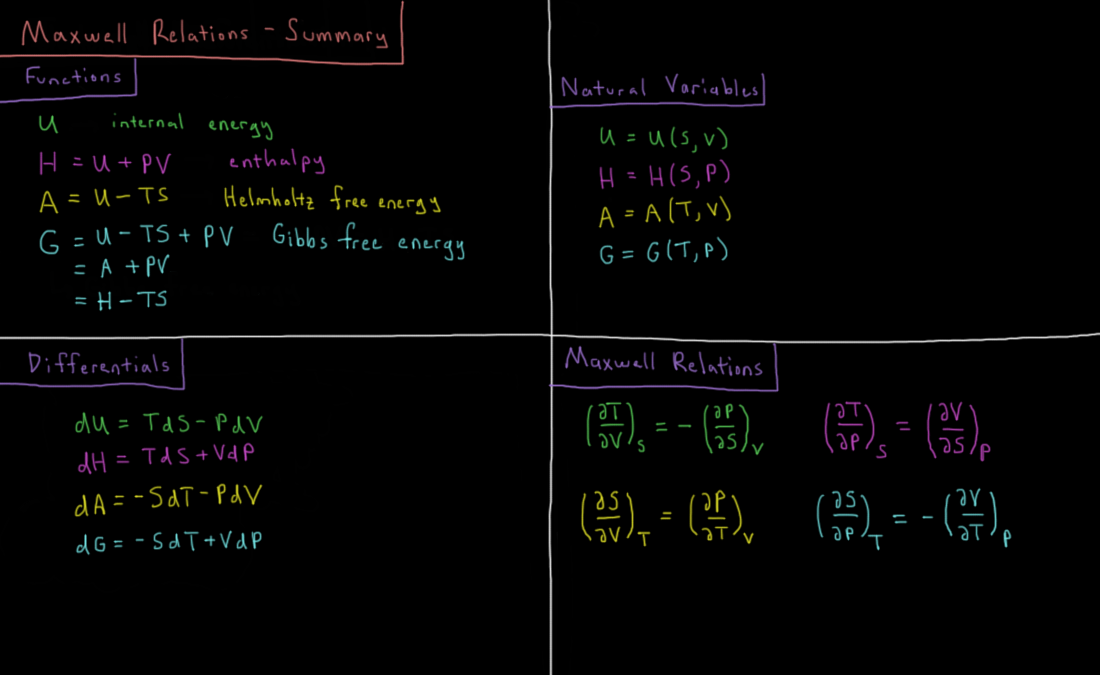 Maxwell Relations - Summary
Functions
U internal energy
H = U + PV enthalpy
A = U - TS Helmholtz free energy
G = U - TS + PV Gibbs free energy
= A + PV
= H - TS
Natural Variables
U = U(S, V)
H = H(S, P)
A = A(T, V)
G = G(T, P)
Differentials
dU = TdS - PdV
dH = TdS + VdP
dA = -SdT - PdV
dG = -SdT + VdP
Maxwell Relations
(∂T/∂V)_S = -(∂P/∂S)_V (∂T/∂P)_S = (∂V/∂S)_P
(∂S/∂V)_T = (∂P/∂T)_V (∂S/∂P)_T = -(∂V/∂T)_P